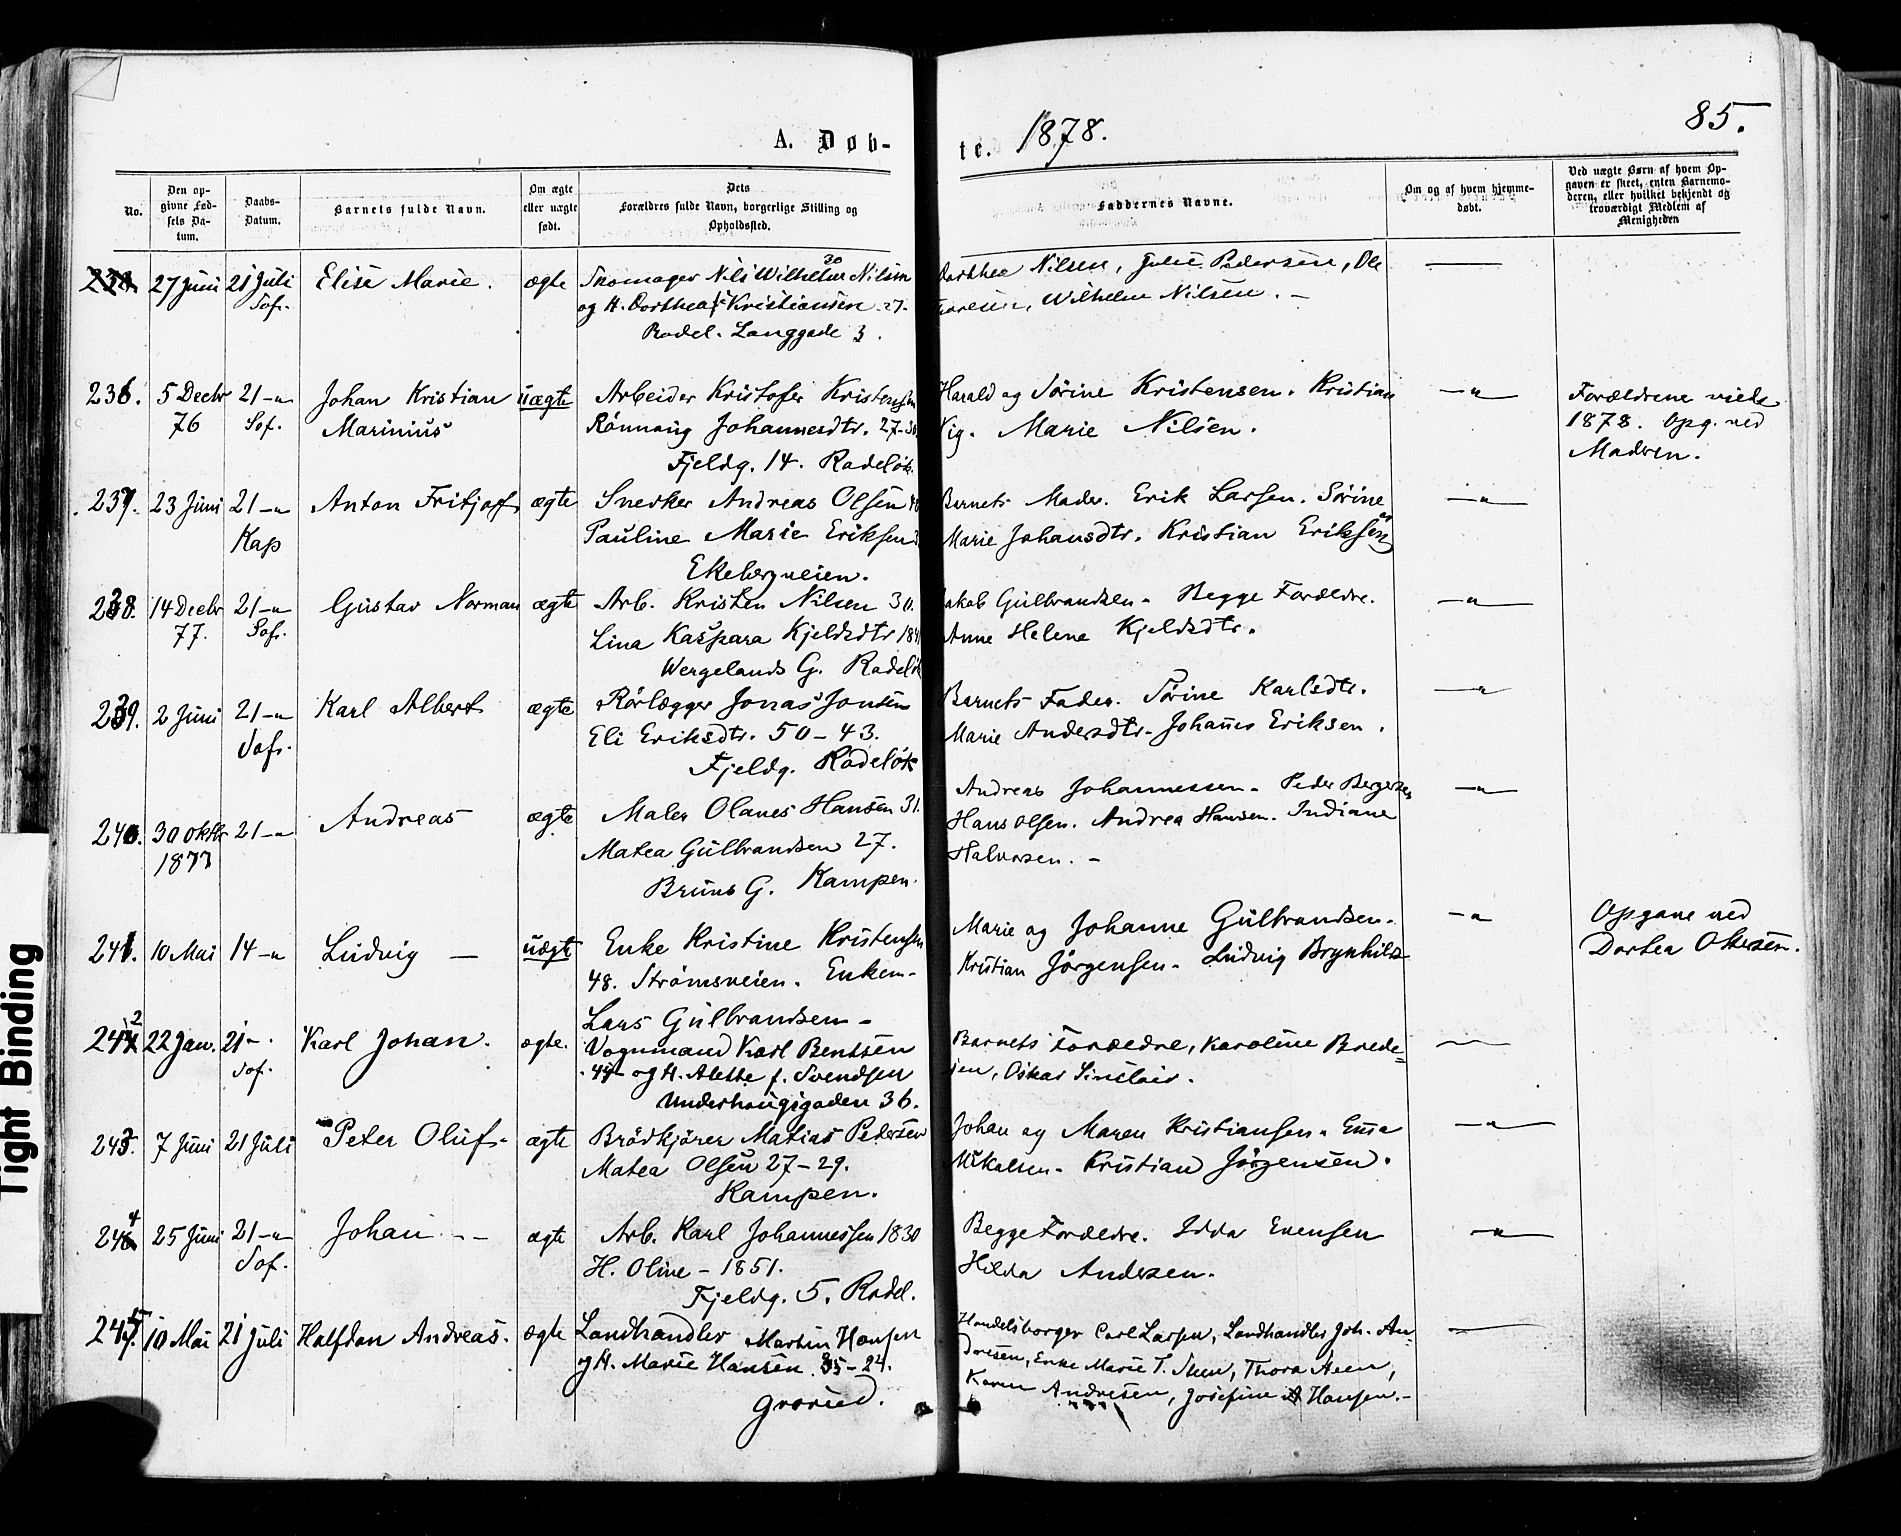 A. Døb-
te. 1878.
85.
No.
Den op-
givne Fød-
sels Da-
tum.
Daabs-
Datum.
Barnets fulde Navn.
Om ægte
eller uægte
født.
Dets
Forældres fulde Navn, borgerlige Stilling og
Opholdssted.
Faddernes Navne.
Om og af hvem hjemme-
døbt.
Ved uægte Børn af hvem Op-
gaven er skeet, enten Barnemo-
deren, eller hvilket bekjendt og
troværdigt Medlem af
Menigheden
27 Juni 21 Juli Elise Marie. ægte Skomager Nils Wilhelm Nilsen 30
Sofs.
og H. Dorthea f. Kristiansen 27.
Rodel. Langgade 3.
Dorthea Nilsen, Julie Pedersen, Ole
Wilhelm Nilsen. –
236. 5 Decbr 21 –"– Johan Kristian uægte Arbeider Kristofer Kristensen
76 Sof. Marinius Rönnaug Johannesdtr. 27-30
Fjeldg. 14. Rodeløk.
Harald og Sörine Kristensen. Kristian –"–
Vig. Marie Nilsen.
Forældrene viede
1878. Opg. ved
Modren.
237. 23 Juni 21 –"– Anton Fritjof ægte Snedker Andreas Olsen
Kap Pauline Marie Eriksen
Ekebergveien.
Barnets Moder. Erik Larsen. Sörine –"–
Marie Johansdtr. Kristian Eriksen
238. 14 Decbr 21 –"– Gustav Norman ægte Arb. Kristen Nilsen 30.
77. Sofs. Lina Kaspara Kjeldsdtr
Wergelands G. Rodeløk
Jakob Gulbrandsen – Begge Forældre. –"–
Anne Helene Kjeldsdtr.
239. 2 Juni 21 –"– Karl Albert ægte Rörlægger Jonas Jonsen
Sofs. Eli Eriksdtr. 50 – 43.
Fjeldg. Rodeløk
Barnets Fader. Sörine Karlsdtr. –"–
Marie Andersdtr – Johannes Eriksen.
240. 30 Oktbr 21 –"– Andreas ægte Maler Olaves Hansen 31.
1877 Matea Gulbrandsen 27.
Bruns G. Kampen.
Andreas Johannessen – Peder Bergersen –"–
Hans Olsen. Andrea Hansen. Indiane
Halvorsen. –
241. 10 Mai 14 –"– Ludvig — uægte Enke Kristine Kristensen
48. Strömsveien. Enkem–
Lars Gulbrandsen –
Marie og Johanne Gulbrandsen. –"–
Kristian Jörgensen – Ludvig Brynhilds–
Opgave ved
Dorthea Olsen.
242 22 Jan. 21 –. Karl Johan. ægte. Vognmand Karl Bentsen
Sof. 44 – og H. Alette f. Svendsen
Underhaugsgaden 36.
Barnets Forældre, Karoline Brede=
sen, Oskar Sinclair.
243. 7 Juni 21 Juli Peter Oluf – ægte Brödkjörer Matias Pedersen
Matea Olsen 27 – 29.
Kampen.
Johan og Maren Kristiansen. Ema –"–
Mikalsen – Kristian Jörgensen.
244 25 Juni 21 –"– Johan – – ægte Arb. Karl Johannessen 1830
Sof. H. Oline – 1851.
Fjeldg. 5. Rodel.
Begge Forældre. Idda Evensen –"–
Hilda Andersen.
245. 10 Mai 21 Juli Halfdan Andreas. ægte Landhandler Martin Hansen
og H. Marie Hansen. 35 – 24.
Grorud.
Handelsborger Carl Larsen, Landhandler Joh. An-
dresen, Enke Marie T. Steen, Thora Steen,
Karen Andresen, Josefine A Hansen. –
Tight Binding